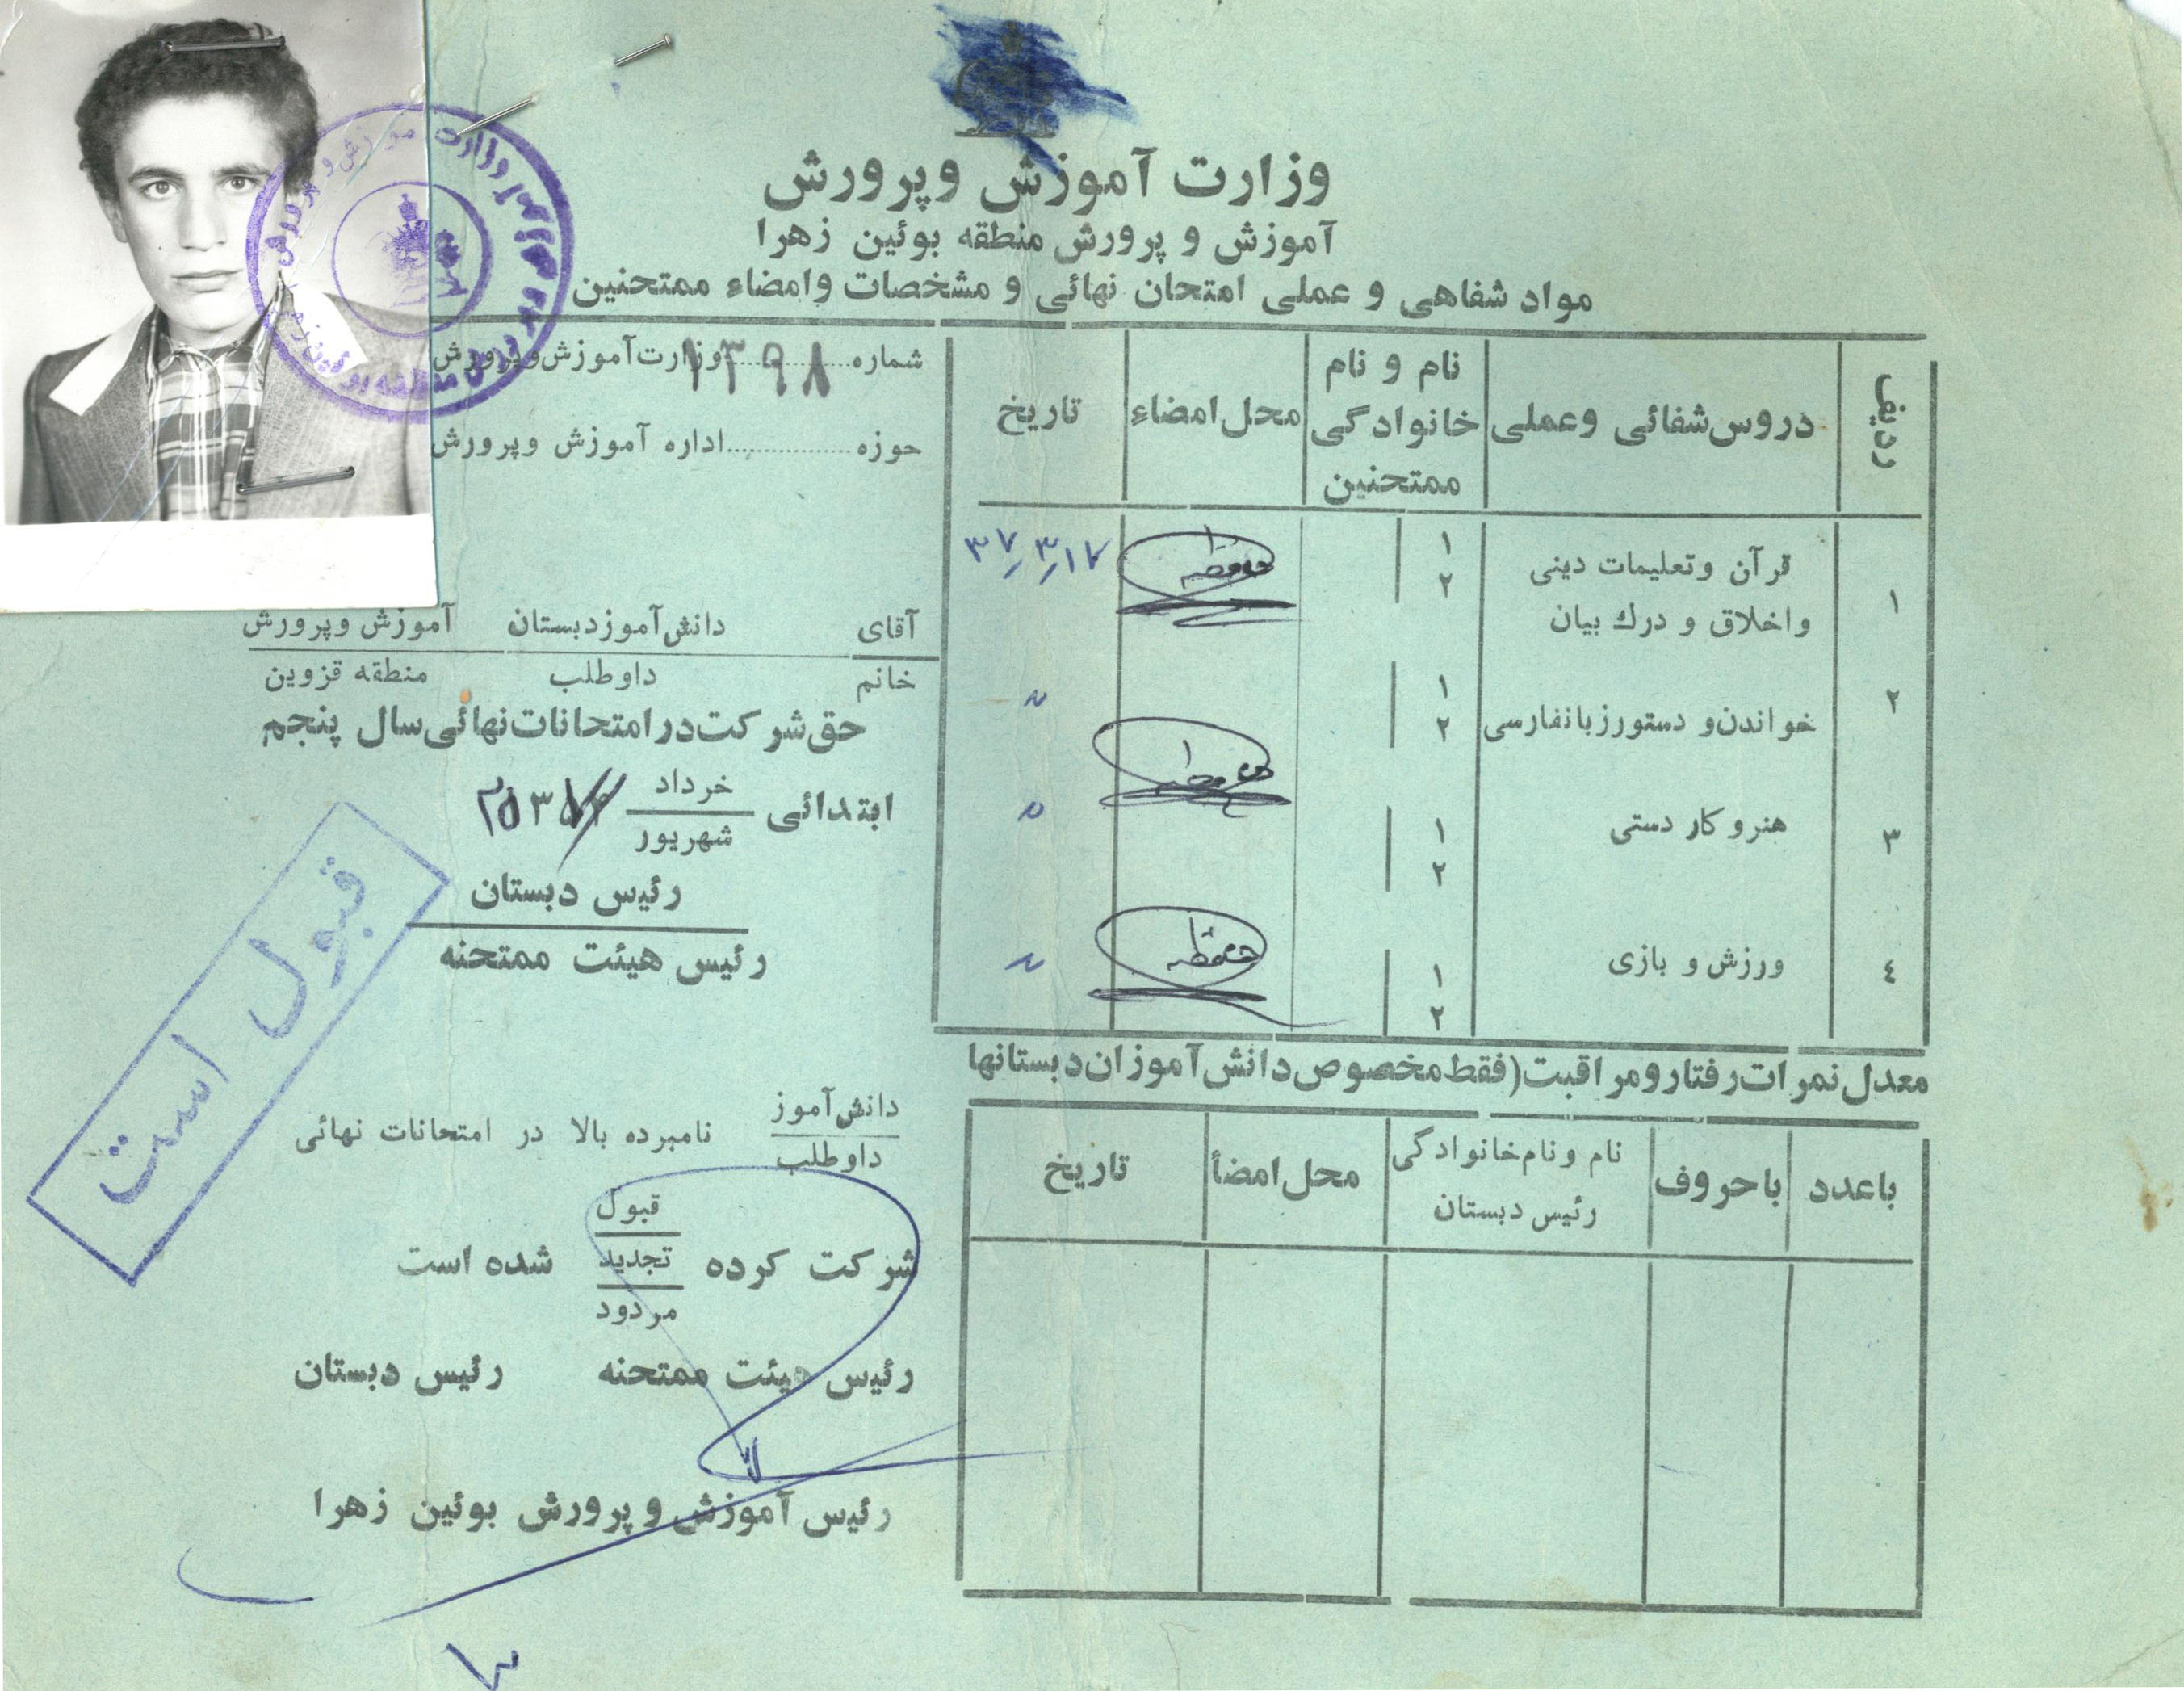 وزارت آموزش وپرورش
آموزش و پرورش منطقه بوئین زهرا
مواد شفاهی و عملی امتحان نهائی و مشخصات وامضاء ممتحنین
ردیف
دروس شفائی وعملی
نام و نام
خانوادگی
ممتحنین
محل امضاء
تاریخ
۱
قرآن وتعلیمات دینی
واخلاق و درك بیان
۱
۲
۳۷/۳/۱۷
۲
خواندن و دستورزبانفارسی
۱
۲
"
۳
هنرو کار دستی
۱
۲
"
٤
ورزش و بازی
۱
۲
"
معدل نمرات رفتارومراقبت(فقط مخصوص دانش آموزان دبستانها
باعدد
باحروف
نام ونام خانوادگی
رئیس دبستان
محل امضأ
تاریخ
شماره ۱۳۹۸ وزارت آموزش وپرورش
حوزه ............... اداره آموزش وپرورش
آقای دانش آموزدبستان آموزش وپرورش
خانم داوطلب منطقه قزوین
حق شرکت در امتحانات نهائی سال پنجم
ابتدائی خرداد
شهریور
رئیس دبستان
رئیس هیئت ممتحنه
قبول است
دانش آموز
داوطلب
نامبرده بالا در امتحانات نهائی
شرکت کرده
قبول
تجدید
مردود
شده است
رئیس هیئت ممتحنه رئیس دبستان
رئیس آموزش و پرورش بوئین زهرا